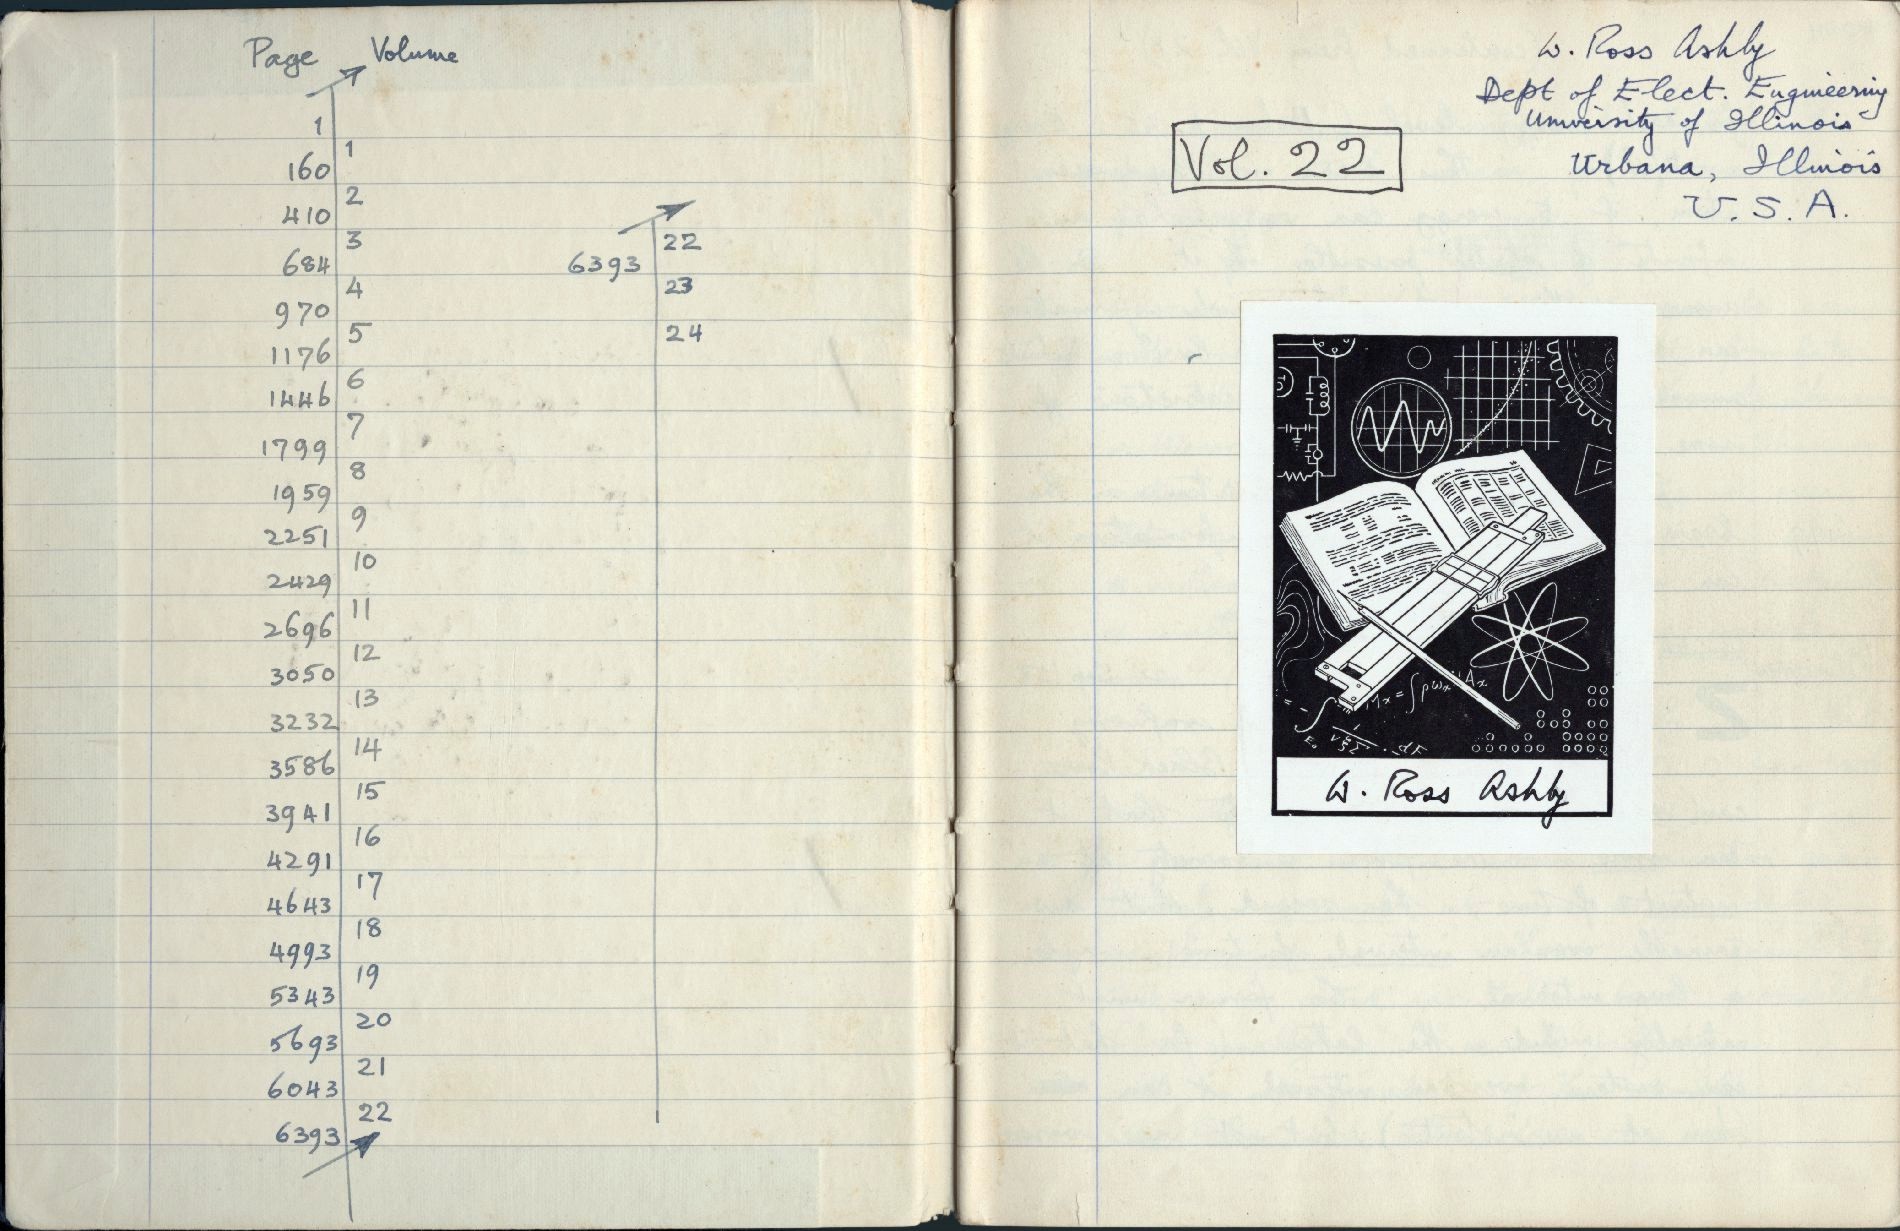 Page Volume
1
1
160
2
410
3
684
4
970
5
1176
6
1446
7
1799
8
1959
9
2251
10
2429
11
2696
12
3050
13
3232
14
3586
15
3941
16
4291
17
4643
18
4993
19
5343
20
5693
21
6043
22
6393
22
6393
23
24
W. Ross Ashby
Dept of Elect. Engineering
University of Illinois
Urbana, Illinois
U.S.A.
Vol. 22
W. Ross Ashby